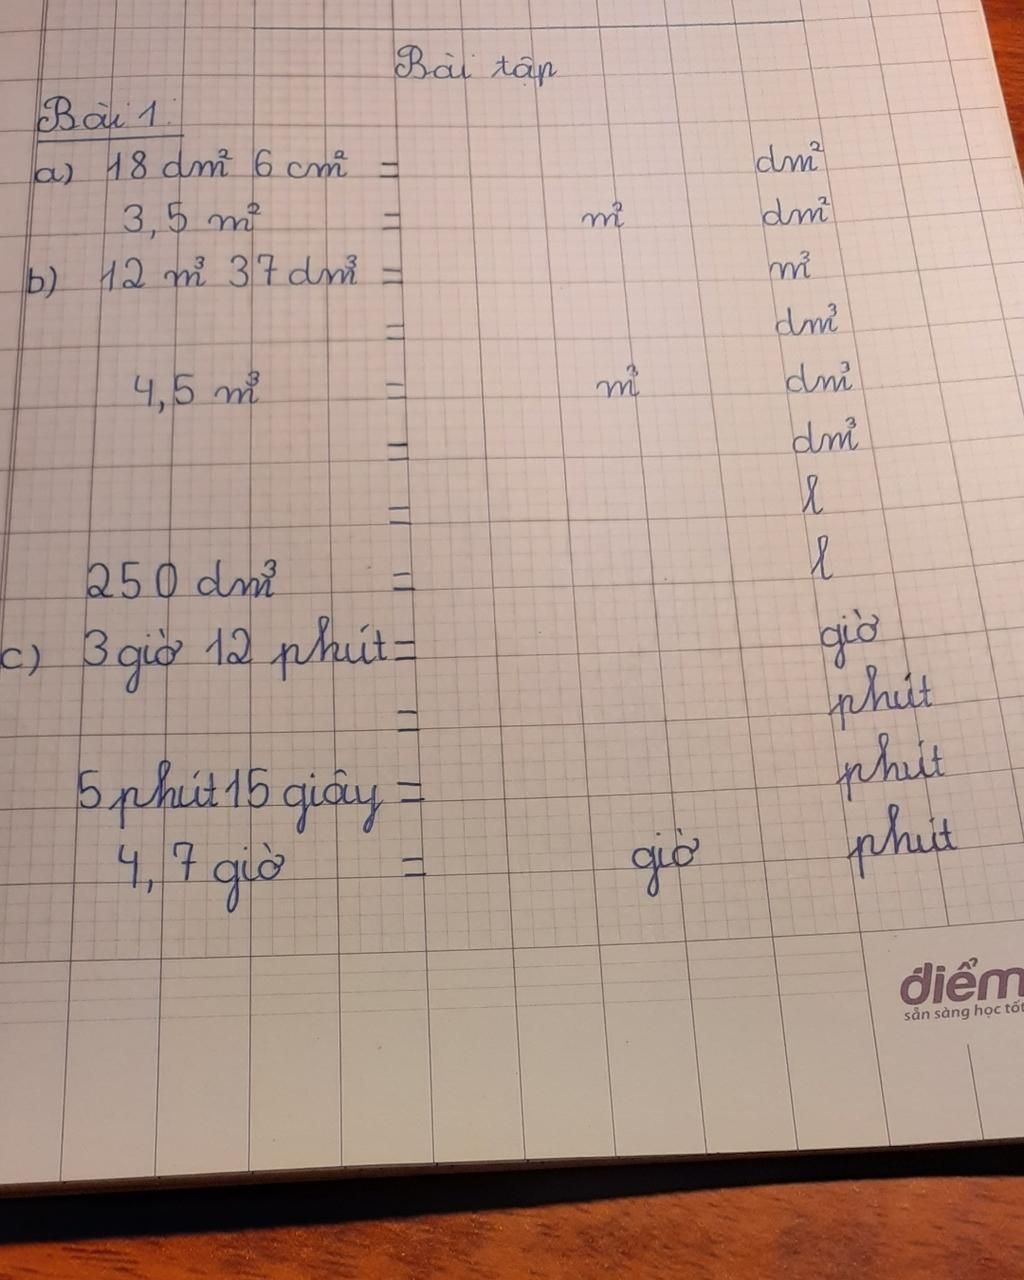 Bài tập
Bài 1.
a) 18 dm² 6 cm² = dm²
3,5 m² = m² dm²
b) 12 m³ 37 dm³ = m³
= dm³
4,5 m³ = m³ dm³
= dm³
= l
250 dm³ = l
c) 3 giờ 12 phút = giờ
= phút
5 phút 15 giây = phút
4,7 giờ = giờ phút
điểm
sẵn sàng học tốt